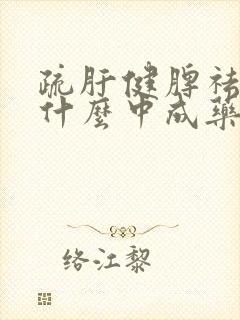 疏肝健脾祛
什麼中成藥
络江黎